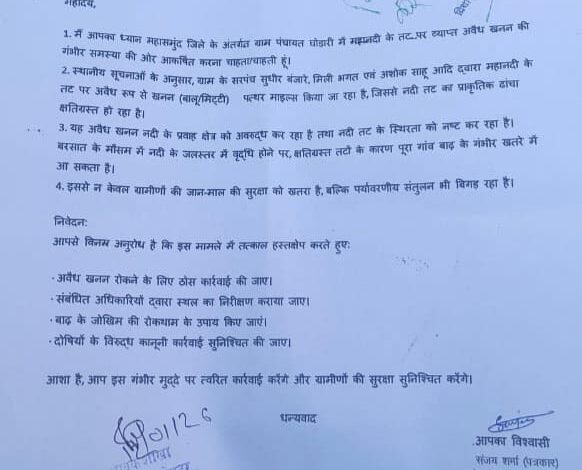 महोदय,
1. मैं आपका ध्यान महासमुंद जिले के अंतर्गत ग्राम पंचायत घोड़ारी में महानदी के तट.पर व्याप्त अवैध खनन की
गंभीर समस्या की ओर आकर्षित करना चाहता/चाहती हूं।
2. स्थानीय सूचनाओं के अनुसार, ग्राम के सरपंच सुधीर बंजारे, मिली भगत एवं अशोक साहू आदि द्वारा महानदी के
तट पर अवैध रूप से खनन (बालू/मिट्टी) पत्थर माइल्स किया जा रहा है, जिससे नदी तट का प्राकृतिक ढांचा
क्षतिग्रस्त हो रहा है।
3. यह अवैध खनन नदी के प्रवाह क्षेत्र को अवरुद्ध कर रहा है तथा नदी तट के स्थिरता को नष्ट कर रहा है।
बरसात के मौसम में नदी के जलस्तर में वृद्धि होने पर, क्षतिग्रस्त तटों के कारण पूरा गांव बाढ़ के गंभीर खतरे में
आ सकता है।
4. इससे न केवल ग्रामीणों की जान-माल की सुरक्षा को खतरा है, बल्कि पर्यावरणीय संतुलन भी बिगड़ रहा है।
निवेदन:
आपसे विनम्र अनुरोध है कि इस मामले में तत्काल हस्तक्षेप करते हुए:
· अवैध खनन रोकने के लिए ठोस कार्रवाई की जाए।
· संबंधित अधिकारियों द्वारा स्थल का निरीक्षण कराया जाए।
· बाढ़ के जोखिम की रोकथाम के उपाय किए जाएं।
· दोषियों के विरुद्ध कानूनी कार्रवाई सुनिश्चित की जाए।
आशा है, आप इस गंभीर मुद्दे पर त्वरित कार्रवाई करेंगे और ग्रामीणों की सुरक्षा सुनिश्चित करेंगे।
धन्यवाद
आपका विश्वासी
संजय शर्मा (पत्रकार)